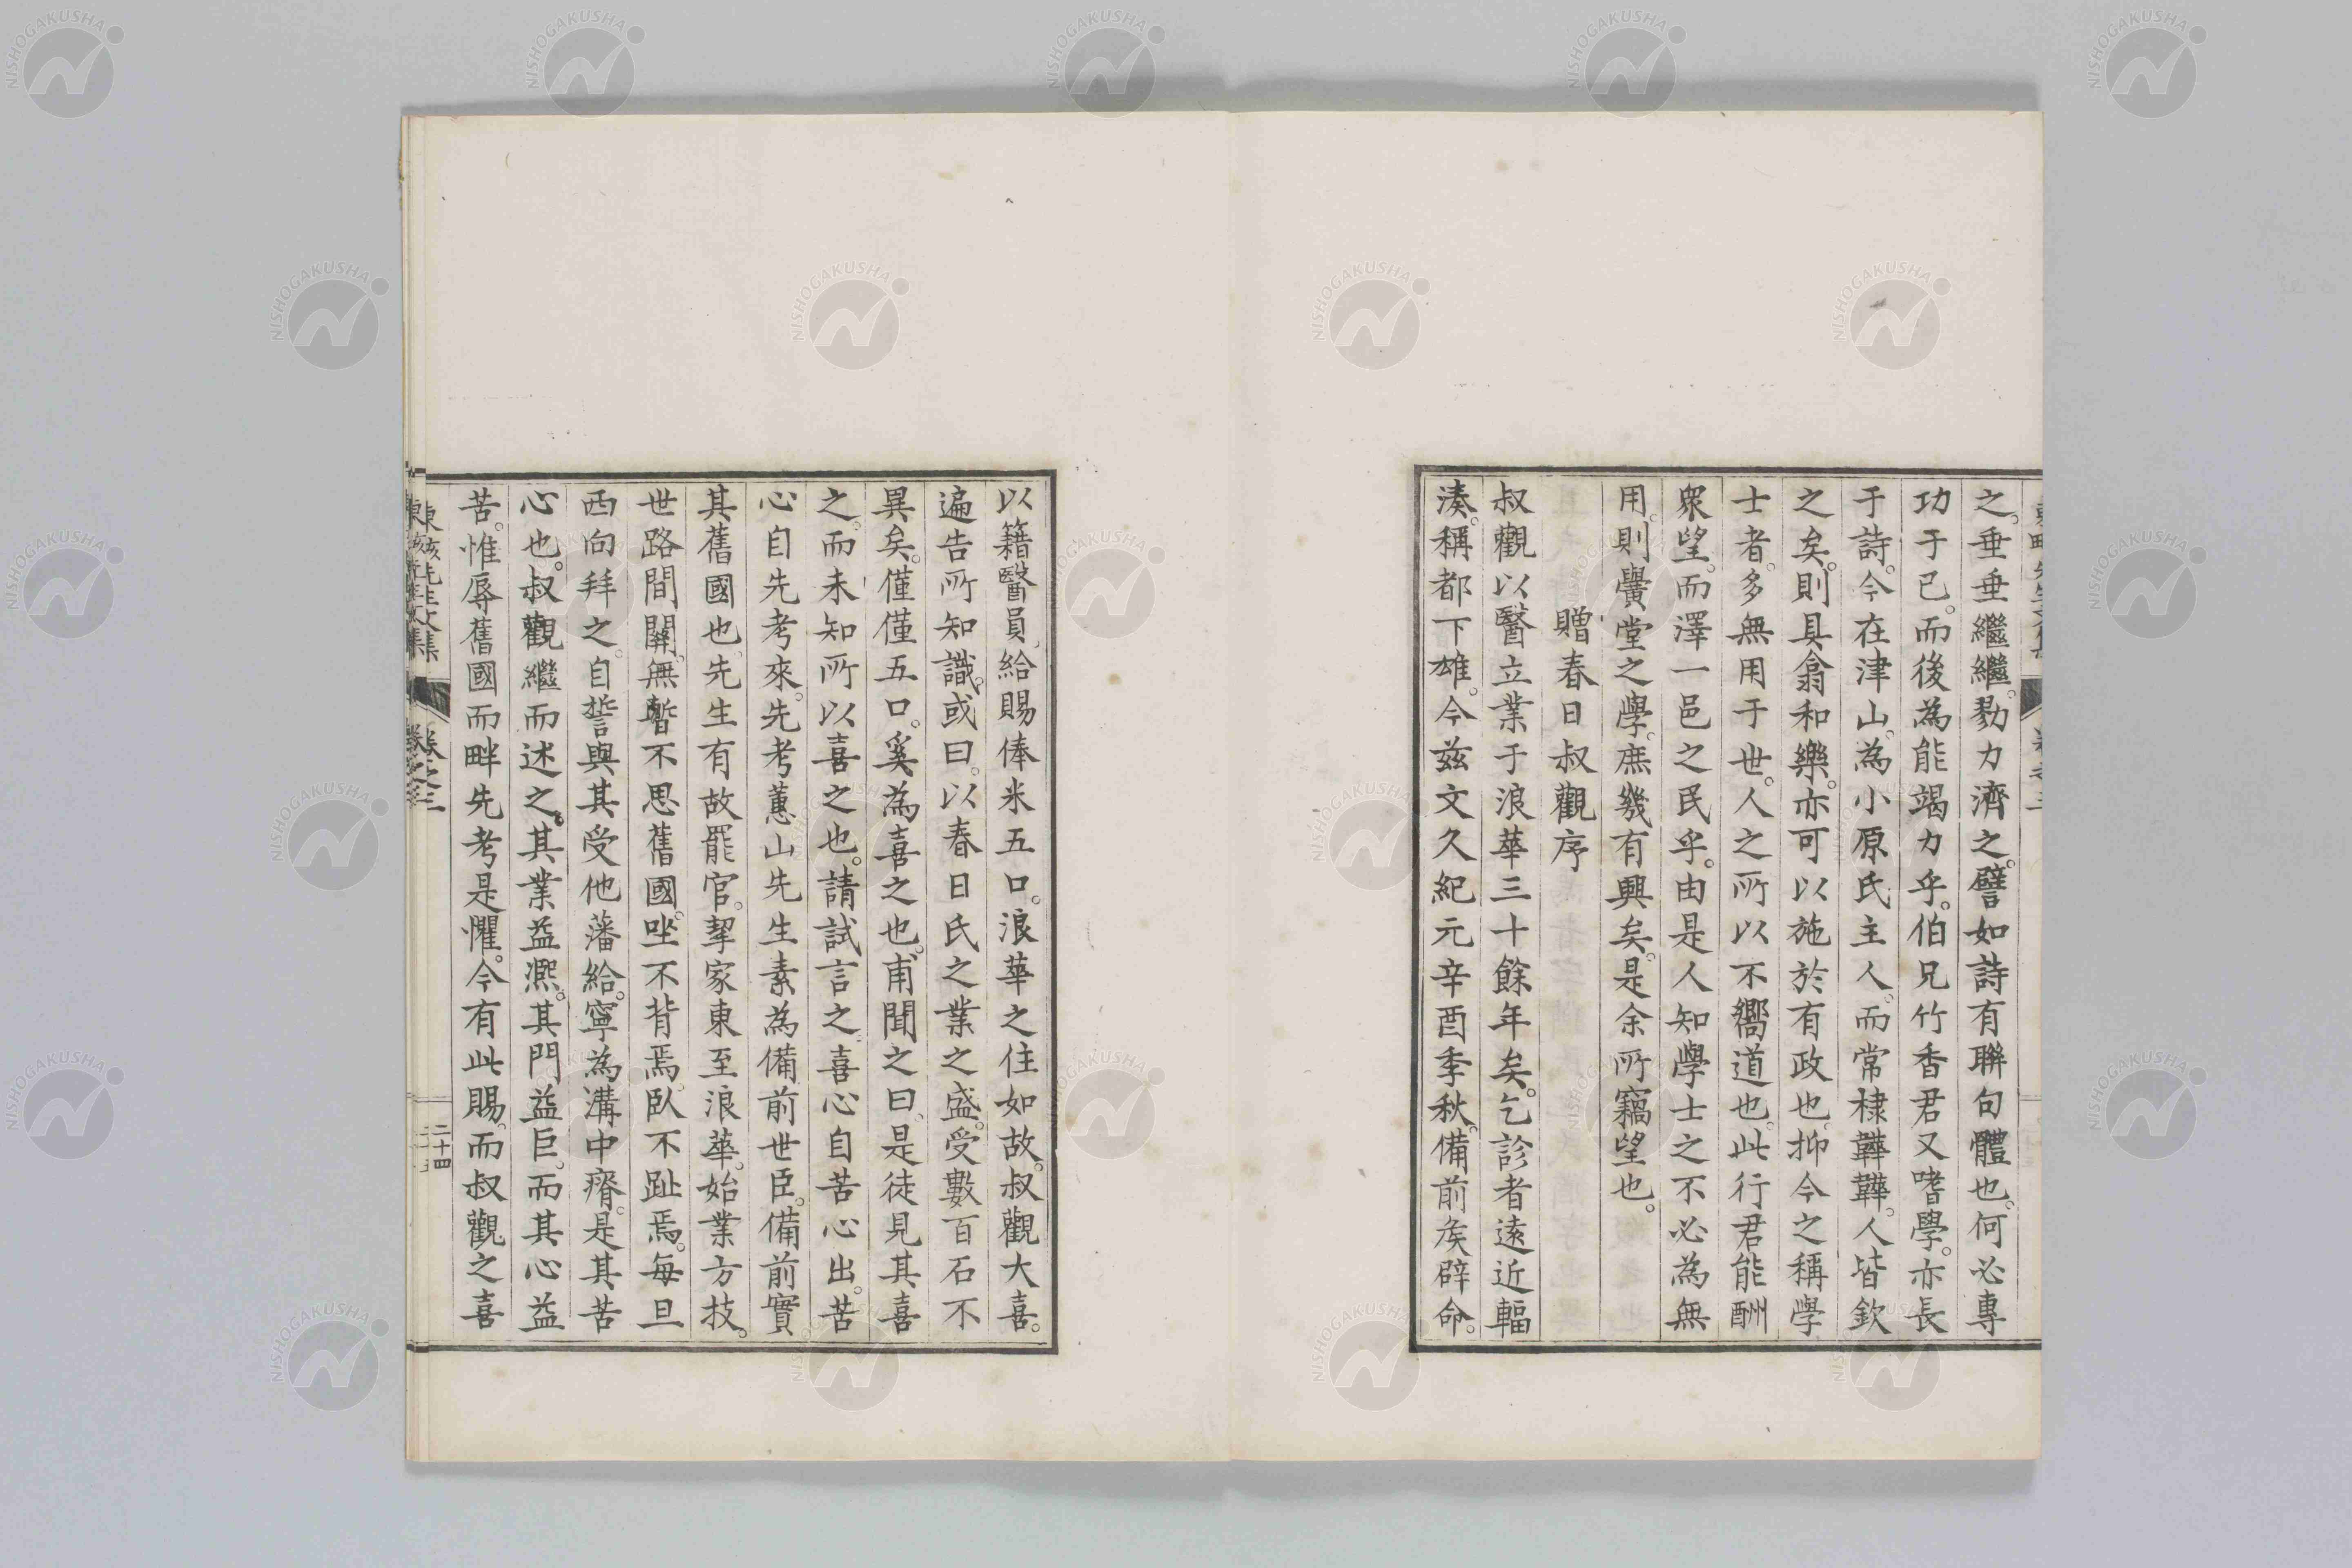 之。垂垂繼繼。勠力濟之。譬如詩有聯句體也。何必專
功于己。而後為能竭力乎。伯兄竹香君又嗜學。亦長
于詩。今在津山。為小原氏主人。而常棣韡韡。人皆欽
之矣。則具翕和樂。亦可以施於有政也。抑今之稱學
士者。多無用于世。人之所以不嚮道也。此行君能酬
衆望。而澤一邑之民乎。由是人知學士之不必為無
用。則黌堂之學。庶幾有興矣。是余所竊望也。
贈春日叔觀序
叔觀以醫立業于浪華三十餘年矣。乞診者遠近輻
湊。稱都下雄。今茲文久紀元辛酉季秋。備前矦辟命。
以籍醫員。給賜俸米五口。浪華之住如故。叔觀大喜。
遍告所知識。或曰。以春日氏之業之盛。受數百石不
異矣。僅僅五口。奚為喜之也。甫聞之曰。是徒見其喜
之。而未知所以喜之也。請試言之。喜心自苦心出。苦
心自先考來。先考蕙山先生素為備前世臣。備前實
其舊國也。先生有故罷官。挈家東至浪華。始業方技。
世路間關。無暫不思舊國。坐不背焉。臥不趾焉。每旦
西向拜之。自誓與其受他藩給。寧為溝中瘠。是其苦
心也。叔觀繼而述之。其業益熈。其門益巨。而其心益
苦。惟辱舊國而畔先考是懼。今有此賜。而叔觀之喜
東畡先生文集
卷之三
二十四